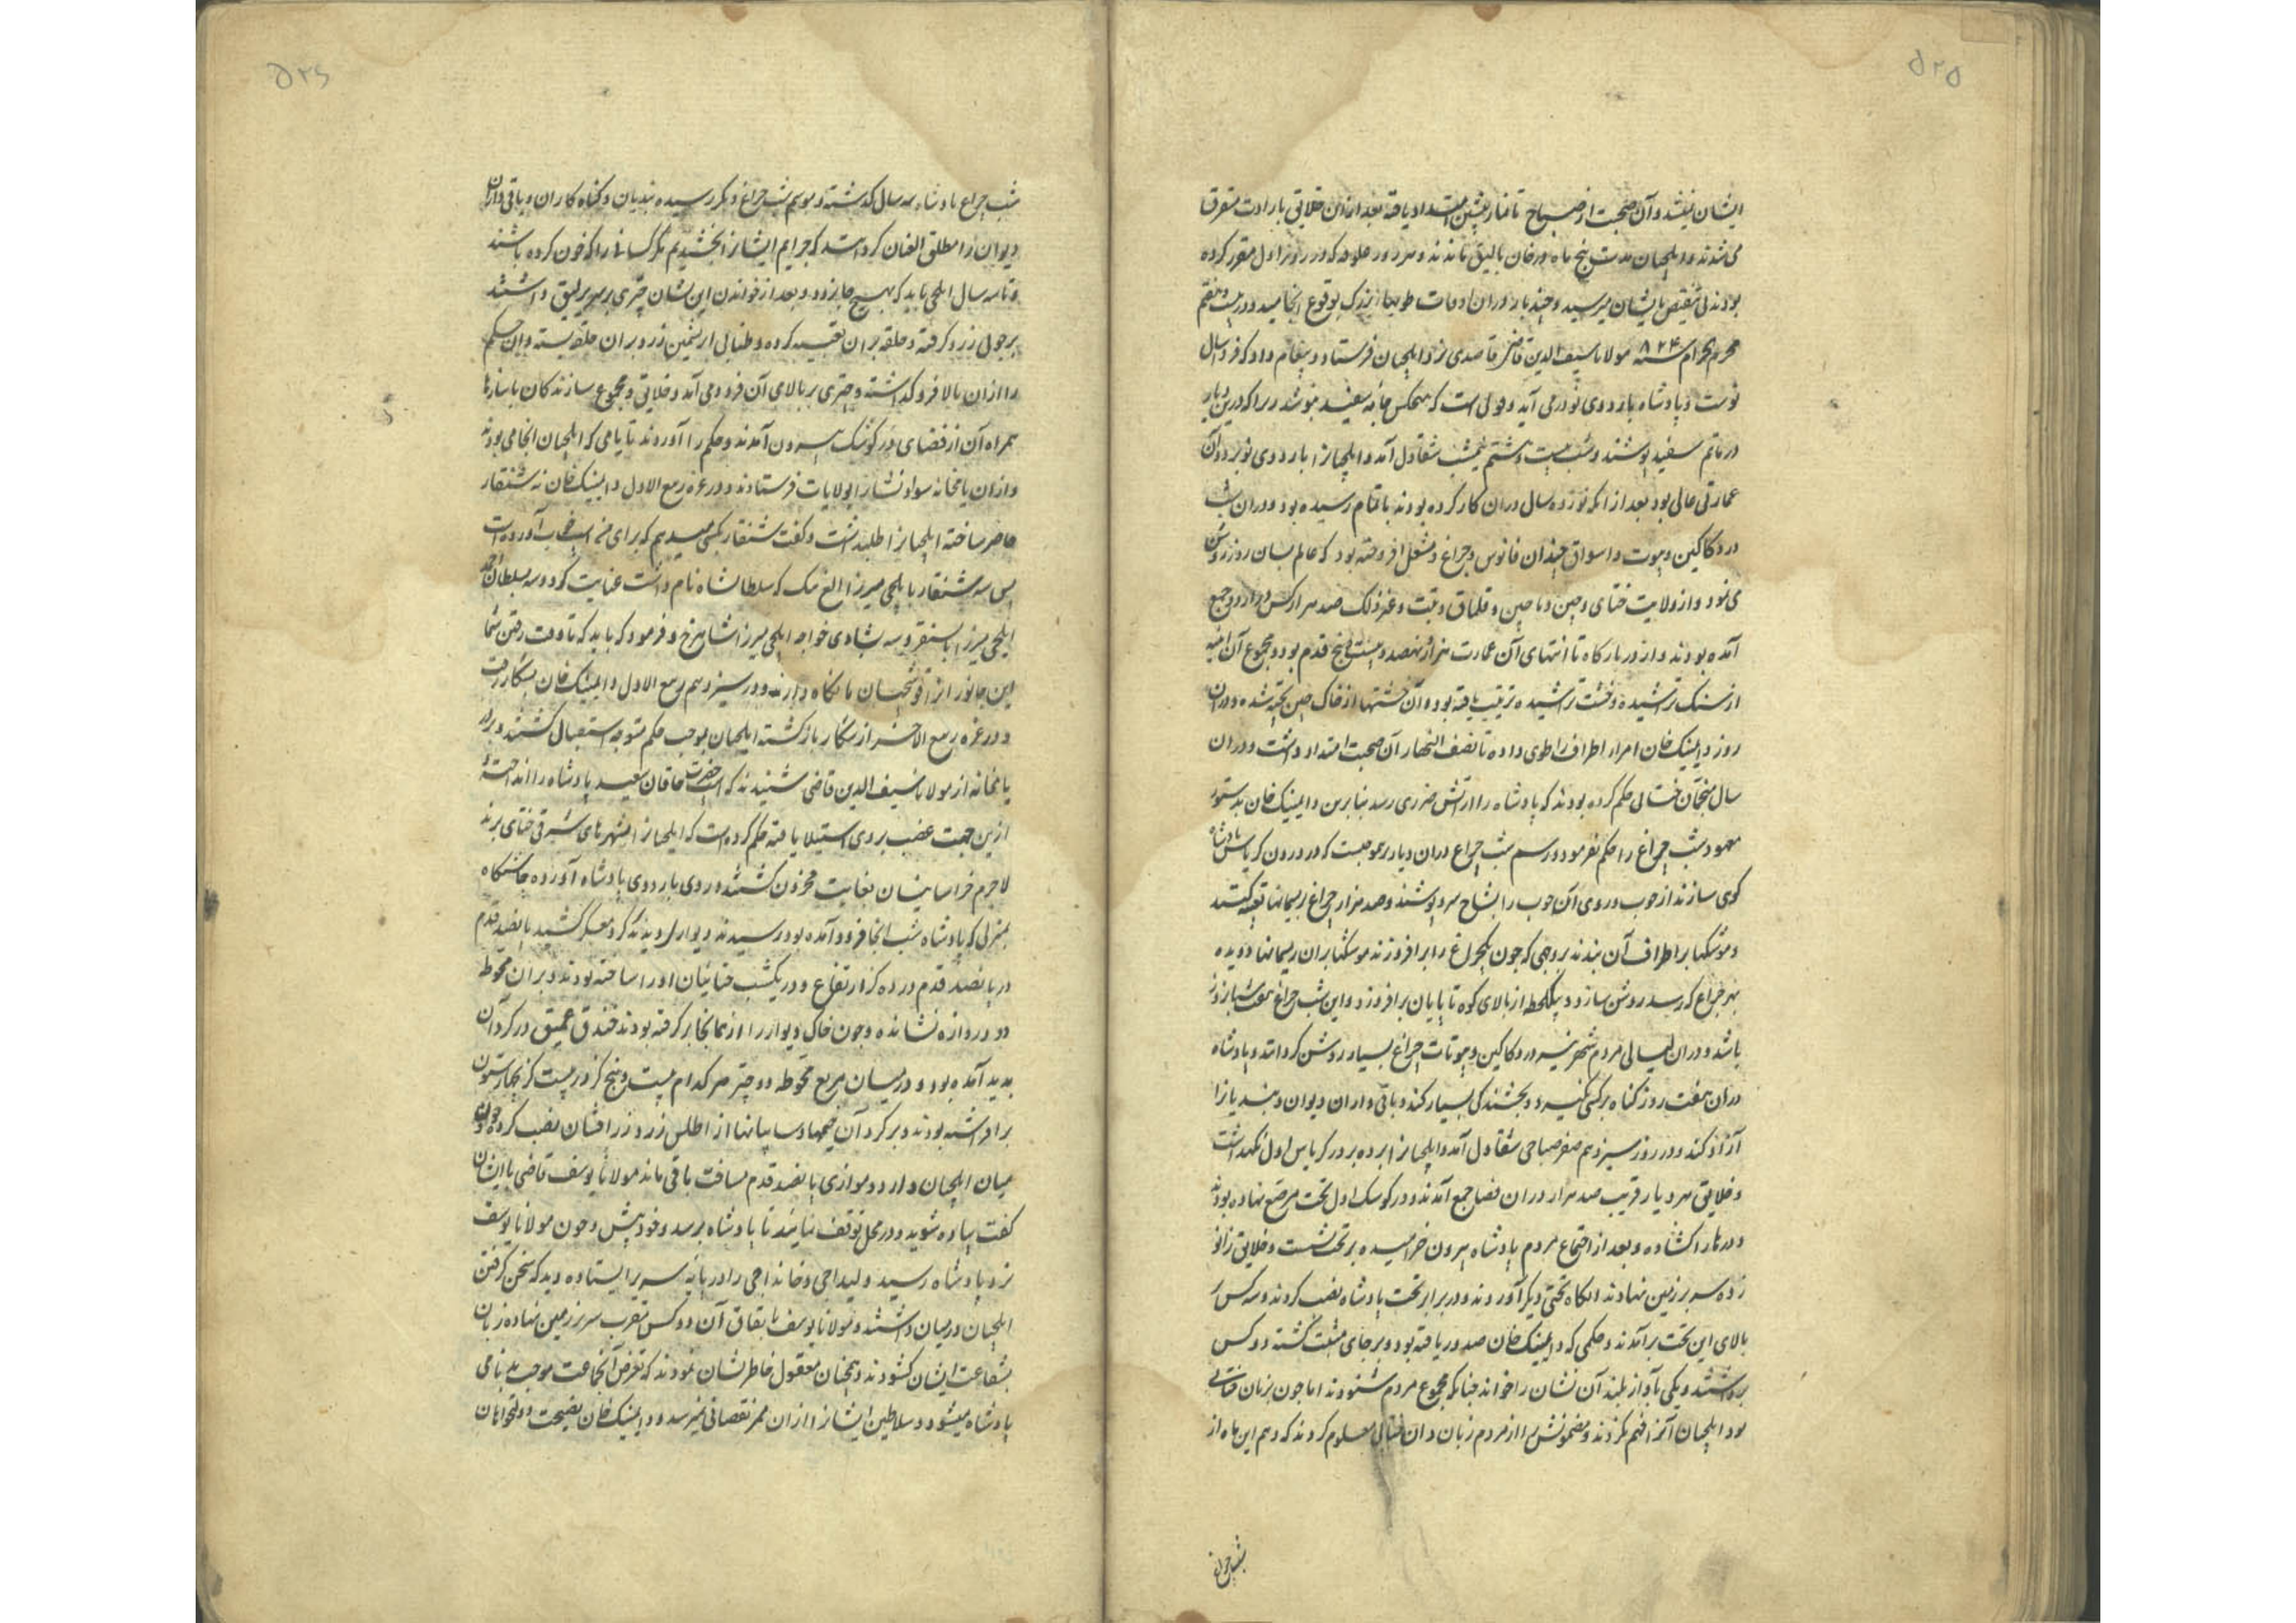 ۵۲۵
ایشان نشینند و آن صحبت از صباح تا نماز پیشین امتداد یافته بعد ازان خلایق بارادت متفرق
می شدند و ایلچیان مدت پنج ماه در خان بالیق ماندند و هر روز علوفه که در روز اول مقرر کرده
بودند بی تنقیص بایشان میرسید و چند بار دران اوقات طویهای بزرگ بوقوع انجامید و در بیست و هفتم
محرم الحرام سنه ۸۲۴ مولانا سیف الدین قاضی قاصدی نزد ایلچیان فرستاد و پیغام داد که فردا سال
نوست و پادشاه باردوی نو درمی آید و یولی است که هیچکس جامه سفید نپوشد زیرا که درین دیار
در ماتم سفید پوشند و شب بیست و هشتم نیمشب شقاول آمد و ایلچیانرا باردوی نو برد و آن
عمارتی عالی بود بعد از انکه نوزده سال دران کار کرده بودند باتمام رسیده بود و دران شب
در دکاکین و بیوت و اسواق چندان فانوس و چراغ و مشعل افروخته بود که عالم بسان روز روشن
می نمود و از ولایت ختای و چین و ماچین و قلماق و تبت و غیر ذلک صد هزار کس در اردو جمع
آمده بودند و از در بارگاه تا انتهای آن عمارت هزار و نهصد و بیست و پنج قدم بود و مجموع آن ابنیه
از سنگ تراشیده و خشت تراشیده ترتیب یافته بود و آن خشتها از خاک چین پخته شده و دران
روز دایمینک خان امراء اطراف را طوی داده تا نصف النهار آن صحبت امتداد داشت و دران
سال منجمان ختائی حکم کرده بودند که پادشاه را از آتش ضرری رسد بنابرین دایمینک خان بدستور
معهود شب چراغ را حکم نفرمود و رسم شب چراغ دران دیار برین موجبست که در درون کریاس پادشاه
کوی سازند از چوب و روی آن چوب را بشاخ سرو پوشند و صد هزار چراغ بریسمانها تعبیه کنند
و موشکها بر اطراف آن بندند بروجهی که چون یکچراغ را برافروزند موشکها بران ریسمانها دویده
بهر چراغ که رسد روشن سازد و بیکلحظه از بالای کوه تا پایان برافروزد و این شب چراغ هفت شبانروز
باشد و دران لیالی مردم شهر نیز در دکاکین و بیوتات چراغ بسیار روشن گردانند و پادشاه
دران هفت روز گناه بر کسی نگیرد و بخشندگی بسیار کند و باقی داران دیوان و بندیانرا
آزاد کند و در روز سیزدهم صفر صباحی شقاول آمد و ایلچیانرا برده بر در کریاس اول نگهداشت
و خلایق هر دیار قریب صد هزار دران فضا جمع آمدند و در کوشک اول تخت مرصع نهاده بودند
و درها را گشاده و بعد از اجتماع مردم پادشاه بیرون خرامیده بر تخت نشست و خلایق زانو
زده سر بر زمین نهادند انگاه تختی دیگر آوردند و در برابر تخت پادشاه نصب کردند و سه کس
بالای این تخت برآمدند و حکمی که از دایمینک خان صدور یافته بود و بر جای مثبت گشته دو کس
برداشتند و یکی بآواز بلند آن نشان را خواند چنانکه مجموع مردم شنودند اما چون بزبان ختائی
بود ایلچیان آنرا فهم نکردند و مضمونش را از مردم زبان دان ختائی معلوم کردند که دهم این ماه از
شب چراغ
۵۲۶
شب چراغ پادشاه سه سال گذشته و موسم شب چراغ دیگر رسیده بندیان و گناه کاران و باقی داران
دیوان را مطلق العنان گردانید که جرایم ایشانرا بخشیدیم مگر کسانی را که خون کرده باشند
و تا سه سال ایلچی باید که بهیچ جا نرود و بعد از خواندن این نشان چتری بر سر یرلیغ داشتند
بر چوبی زر گرفته و حلقه بران تعبیه کرده و طناب ابریشمین زرد بران حلقه بسته و آن حکم
را ازان بالا فرو گذاشته و چتری بر بالای آن فرود می آمد و خلایق و مجموع سازندگان با سازها
همراه آن از فضای در کوشک بیرون آمدند و حکم را آوردند تا یامی که ایلچیان انجا می بودند
و ازان یامخانه سواد نشان را بولایات فرستادند و در غره ربیع الاول دایمینک خان نه شنقار
حاضر ساخته ایلچیانرا طلب داشت و گفت شنقار بکسی میدهم که برای من اسب خوب آورده است
پس سه شنقار بایلچی میرزا الغ بیک که سلطانشاه نام داشت عنایت کرد و سه بسلطان احمد
ایلچی میرزا بایسنقر و سه بشادی خواجه ایلچی میرزا شاهرخ و فرمود که باید که تا وقت رفتن شما
این جانورانرا قوشچیان ما نگاه دارند و در سیزدهم ربیع الاول دایمینک خان بشکار رفت
و در غره ربیع الآخر از شکار بازگشته ایلچیان بموجب حکم متوجه استقبال گشتند و بر در
یامخانه از مولانا سیف الدین قاضی شنیدند که اسب حضرت خاقان سعید پادشاه را انداخته
ازین جهت غضب بر وی استیلا یافته حکم کرده است که ایلچیانرا بشهرهای شرقی ختای برند
لاجرم خراسانیان بغایت محزون گشتند و روی باردوی پادشاه آورده چاشتگاه
بمنزلی که پادشاه شب انجا فرود آمده بود رسیدند دیواری دیدند گرد معسکر کشیده پانصد قدم
در پانصد قدم در ده گز ارتفاع و در یکشب ختائیان او را ساخته بودند و بران محوطه
دو دروازه نشانده و چون خاک دیوار را از همانجا برگرفته بودند خندق عمیق در گرد آن
پدید آمده بود و در میان مربع محوطه دو چتر هر کدام بیست و پنج گز در بیست گز بچهار ستون
برافراشته بودند و بر گرد آن خیمها و سایبانها از اطلس زرد زرافشان نصب کرده و چون
میان ایلچیان و اردو موازی پانصد قدم مسافت باقی ماند مولانا یوسف قاضی با ایشان
گفت پیاده شوید و در محل توقف نمایند تا پادشاه برسد و خود پیش و چون مولانا یوسف
نزد پادشاه رسید و لیداجی و خانداجی را در پایه سریر ایستاده دید که سخن گرفتن
ایلچیان در میان داشتند و مولانا یوسف باتفاق آن دو کس مقرب سر بر زمین نهاده زبان
بشفاعت ایشان گشودند و بهمچنان معقول خاطر نشان نمودند که تعرض آنجماعت موجب بدنامی
پادشاه میشود و سلاطین ایشانرا ازان ممر نقصانی نمیرسد و دایمینک خان نصیحت دولتخواهان